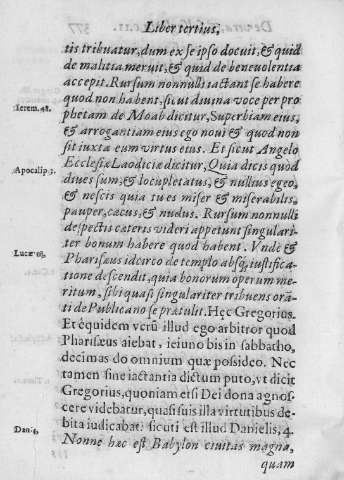 Liber tertius,
tis tribuatur, dum ex se ipso docuit, & quid
de malitia meruit, & quid de benevolentia
accepit. Rursum nonnulli iactant se habere
quod non habent, sicut divina voce per pro
phetam de Moab dicitur, Superbiam eius,
Ierem.48.
& arrogantiam eius ego novi & quod non
sit iuxta eum virtus eius. Et sicut Angelo
Ecclesiæ Laodiciæ dicitur, Quia dicis quod
Apocalip.3.
dives sum, & locupletatus, & nullius egeo,
& nescis quia tu es miser & miserabilis,
pauper, cæcus, & nudus. Rursum nonnulli
despectis cæteris videri appetunt singulari-
ter bonum habere quod habent. Vnde &
Lucæ 18.
Pharisæus idcirco de templo absq; iustifica-
tione descendit, quia bonorum operum me-
ritum, sibi quasi singulariter tribuens orā-
ti de Publicano se prætulit. Hęc Gregorius.
Et équidem verū illud ego arbitror quod
Pharisæus aiebat, ieiuno bis in sabbatho,
decimas do omnium quæ possideo. Nec
tamen sine iactantia dictum puto, vt dicit
Gregorius, quoniam etsi Dei dona agnos-
cere videbatur, quasi suis illa virtutibus de-
bita iudicabat: sicuti est illud Danielis, 4.
Dan.4.
Nonne hæc est Babylon civitas magna,
quam